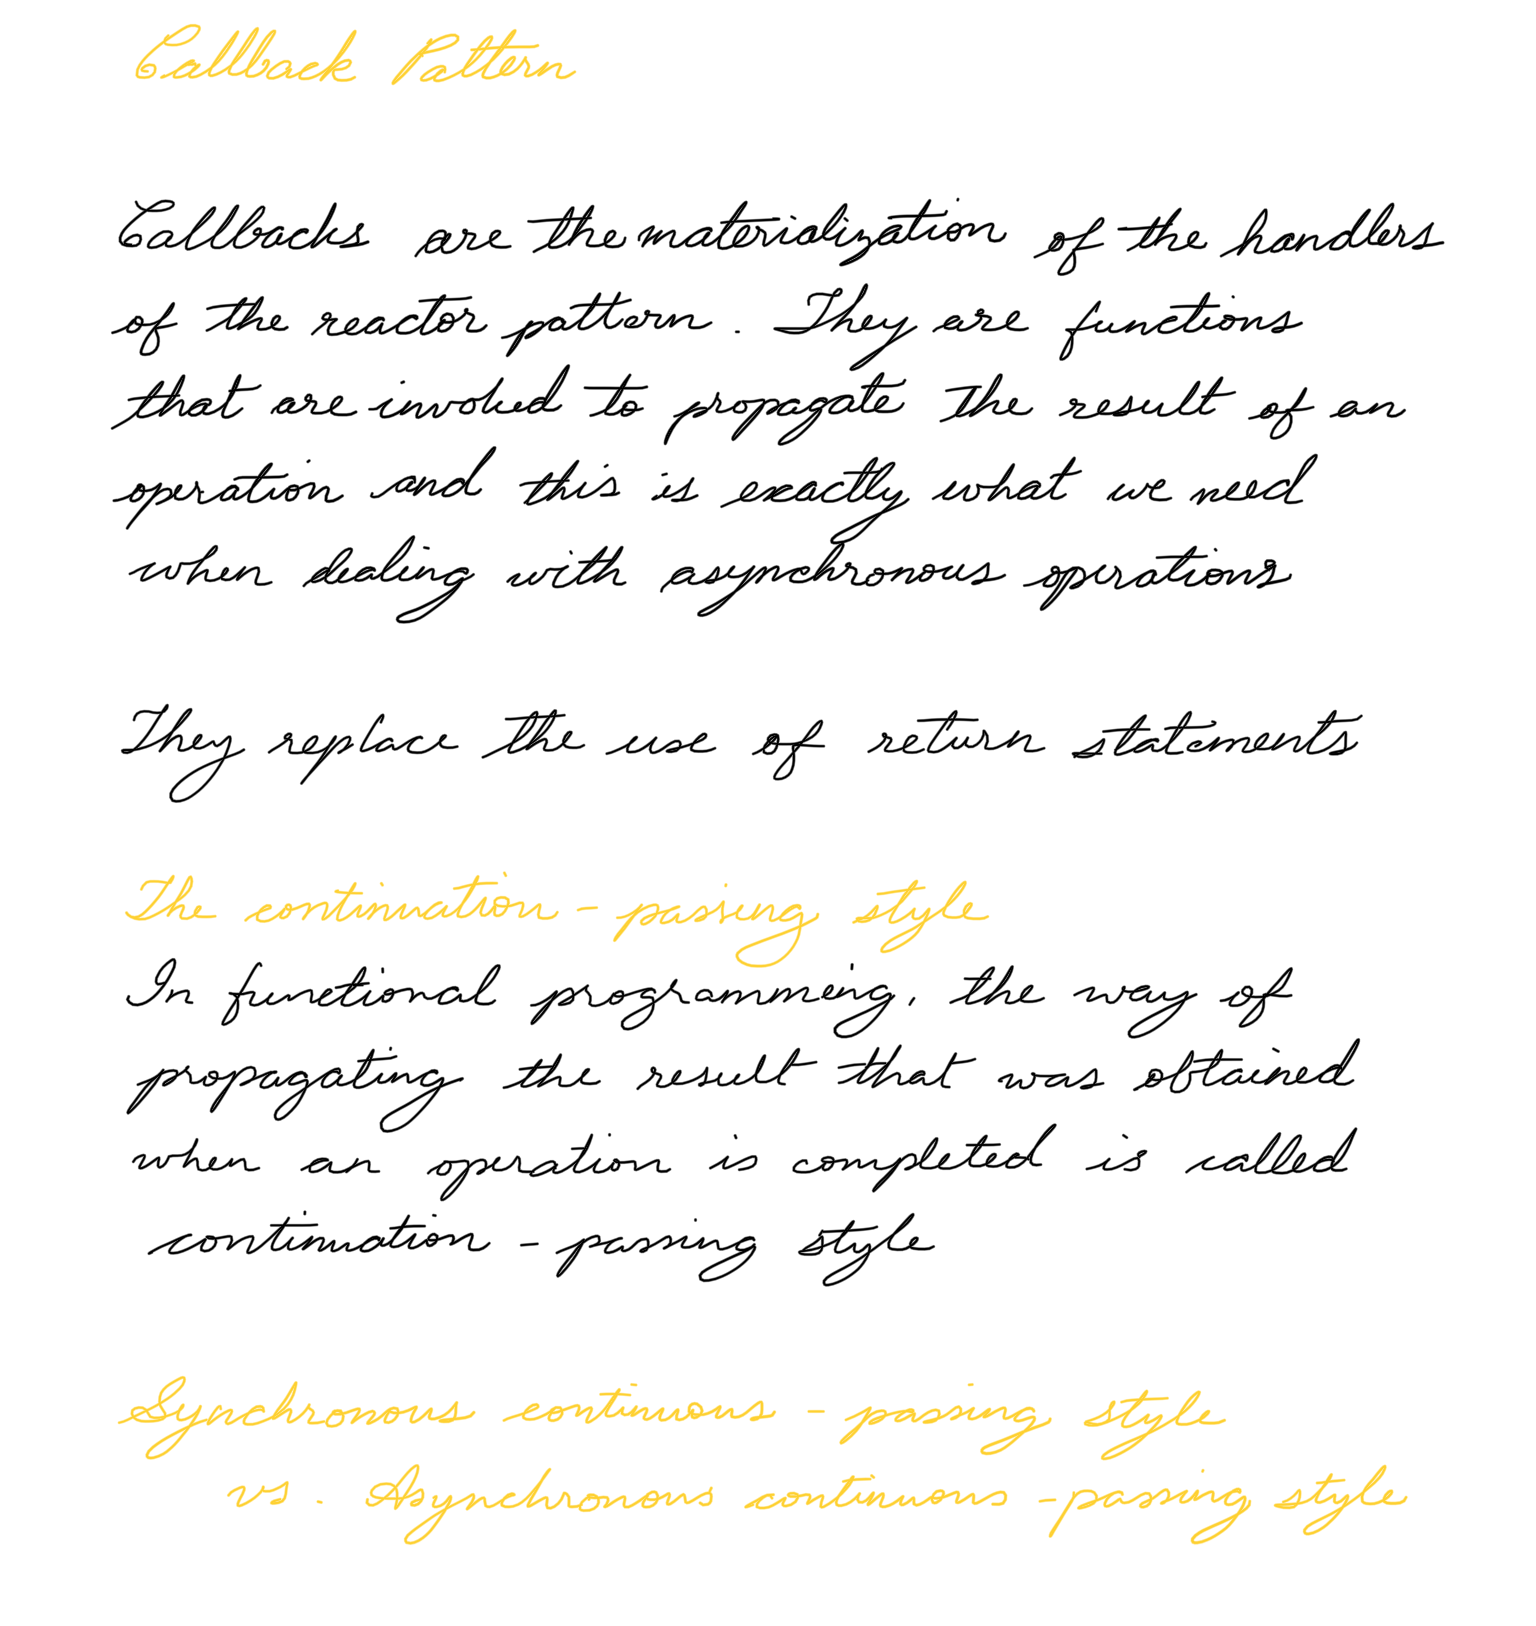 Callback Pattern
Callbacks are the materialization of the handlers
of the reactor pattern. They are functions
that are invoked to propagate the result of an
operation and this is exactly what we need
when dealing with asynchronous operations
They replace the use of return statements
The continuation - passing style
In functional programming, the way of
propagating the result that was obtained
when an operation is completed is called
continuation - passing style
Synchronous continuous - passing style
vs. Asynchronous continuous - passing style